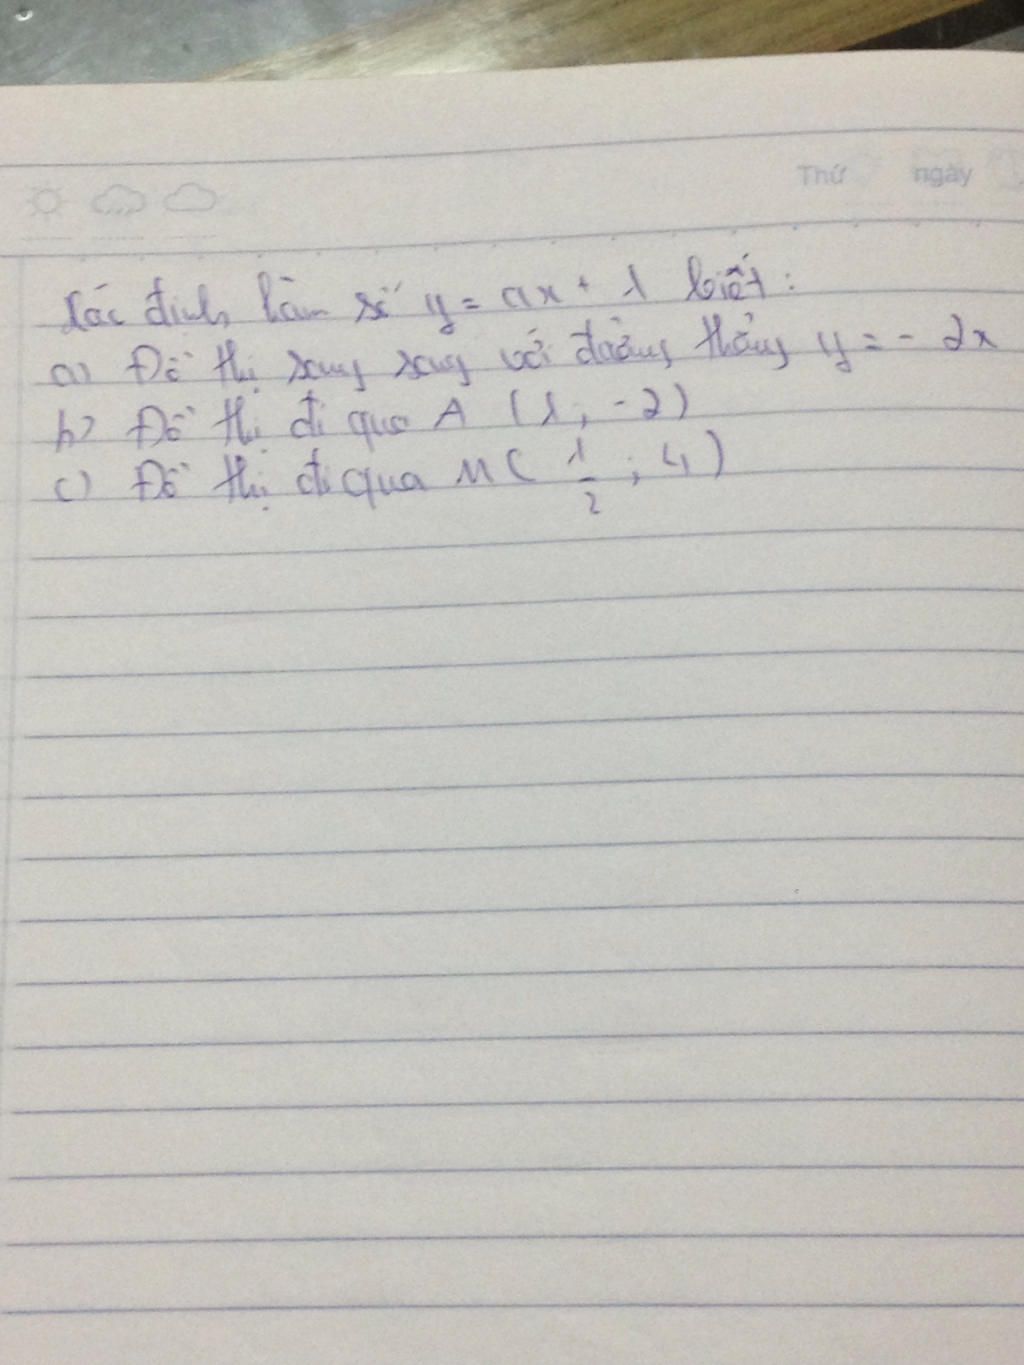 Thứ ngày
Xác định hàm số y = ax + 1 biết :
a) Đồ thị song song với đường thẳng y = - 2x
b) Đồ thị đi qua A (1 ; -2)
c) Đồ thị đi qua M ( 1/2 ; 4 )